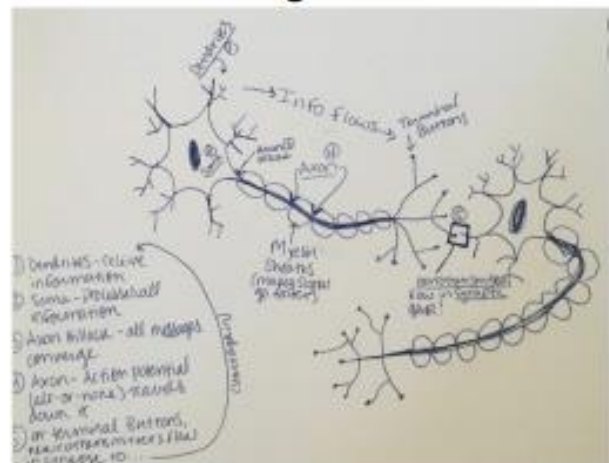 Dendrites
①
→ Info Flows →
Terminal
Buttons
Axon
④
Axon
Myelin
Sheates
(makes signal
go faster)
flow in synaptic
gap!
① Dendrites - receive
information
② Soma - processes all
information
③ Axon Hillock - all messages
converge
④ Axon - Action potential
(all-or-none) travels
down it
⑤ at terminal Buttons,
neurotransmitters flow
to...